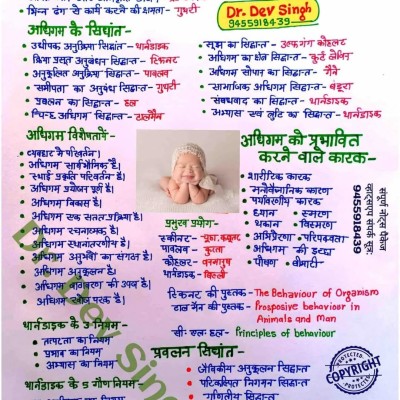 भिन्न ढंग से कार्य करने की क्षमता- गुथरी
Dr. Dev Singh
9455918439
अधिगम के सिद्यांत-
उद्दीपक अनुक्रिया सिद्धांत- थार्नडाइक
क्रिया प्रसूत अनुबंधन सिद्धांत- स्किनर
अनुकूलित अनुक्रिया सिद्धांत- पावलव
समीपता का अनुबंध सिद्धांत- गुथरी
प्रबलन का सिद्धांत- हल
चिन्ह अधिगम सिद्धांत- टालमैन
सूझ का सिद्धान्त- वुल्फगांग कोहलर
अधिगम का क्षेत्र सिद्धान्त- कुर्ट लेविन
अधिगम का सोपान सिद्धान्त- गैने
सामाजिक अधिगम सिद्धांत- बंडूरा
संबंधवाद का सिद्धान्त- थार्नडाइक
अभ्यास एवं त्रुटि का सिद्धान्त- थार्नडाइक
अधिगम विशेषताएँ-
व्यवहार में परिवर्तन।
अधिगम सार्वभौमिक है।
स्थाई प्रकृति परिवर्तन है।
अधिगम प्रयोजन पूर्ण है।
अधिगम विकास है।
अधिगम एक सतत प्रक्रिया है।
अधिगम रचनात्मक है।
अधिगम स्थानांतरणीय है।
अधिगम अनुभवों का संगठन है।
अधिगम अनुकूलन है।
अधिगम वातावरण की उपज है।
अधिगम खोज परक है।
अधिगम को प्रभावित
करने वाले कारक-
शारीरिक कारक
मनोवैज्ञानिक कारण
पर्यावरणीय कारक
ध्यान
स्मरण
थकान
विस्मरण
अभिप्रेरणा
परिपक्वता
अधिगम की इच्छा
पोषण
बीमारी
संपूर्ण नोट्स पैकेज
व्हाट्सएप संपर्क सूत्र:
9455918439
प्रमुख प्रयोग-
स्कीनर- चूहा, कबूतर
पावलव- कुत्ता
कोहलर- वनमानुष
थार्नडाइक- बिल्ली
स्किनर की पुस्तक- The Behaviour of Organism
टालमैन की पुस्तक- Prosposive behaviour in
Animals and Man
सी. एल. हल- Principles of behaviour
थार्नडाइक के 3 नियम-
तत्परता का नियम
प्रभाव का नियम
अभ्यास का नियम
थार्नडाइक के 5 गौण नियम-
प्रबलन सिद्यांत-
जैविकीय अनुकूलन सिद्धान्त
परिकल्पित निगमन सिद्धान्त
गणितीय सिद्धान्त
PROTECTED
COPYRIGHT
PROTECTED
Dr. Dev Sin